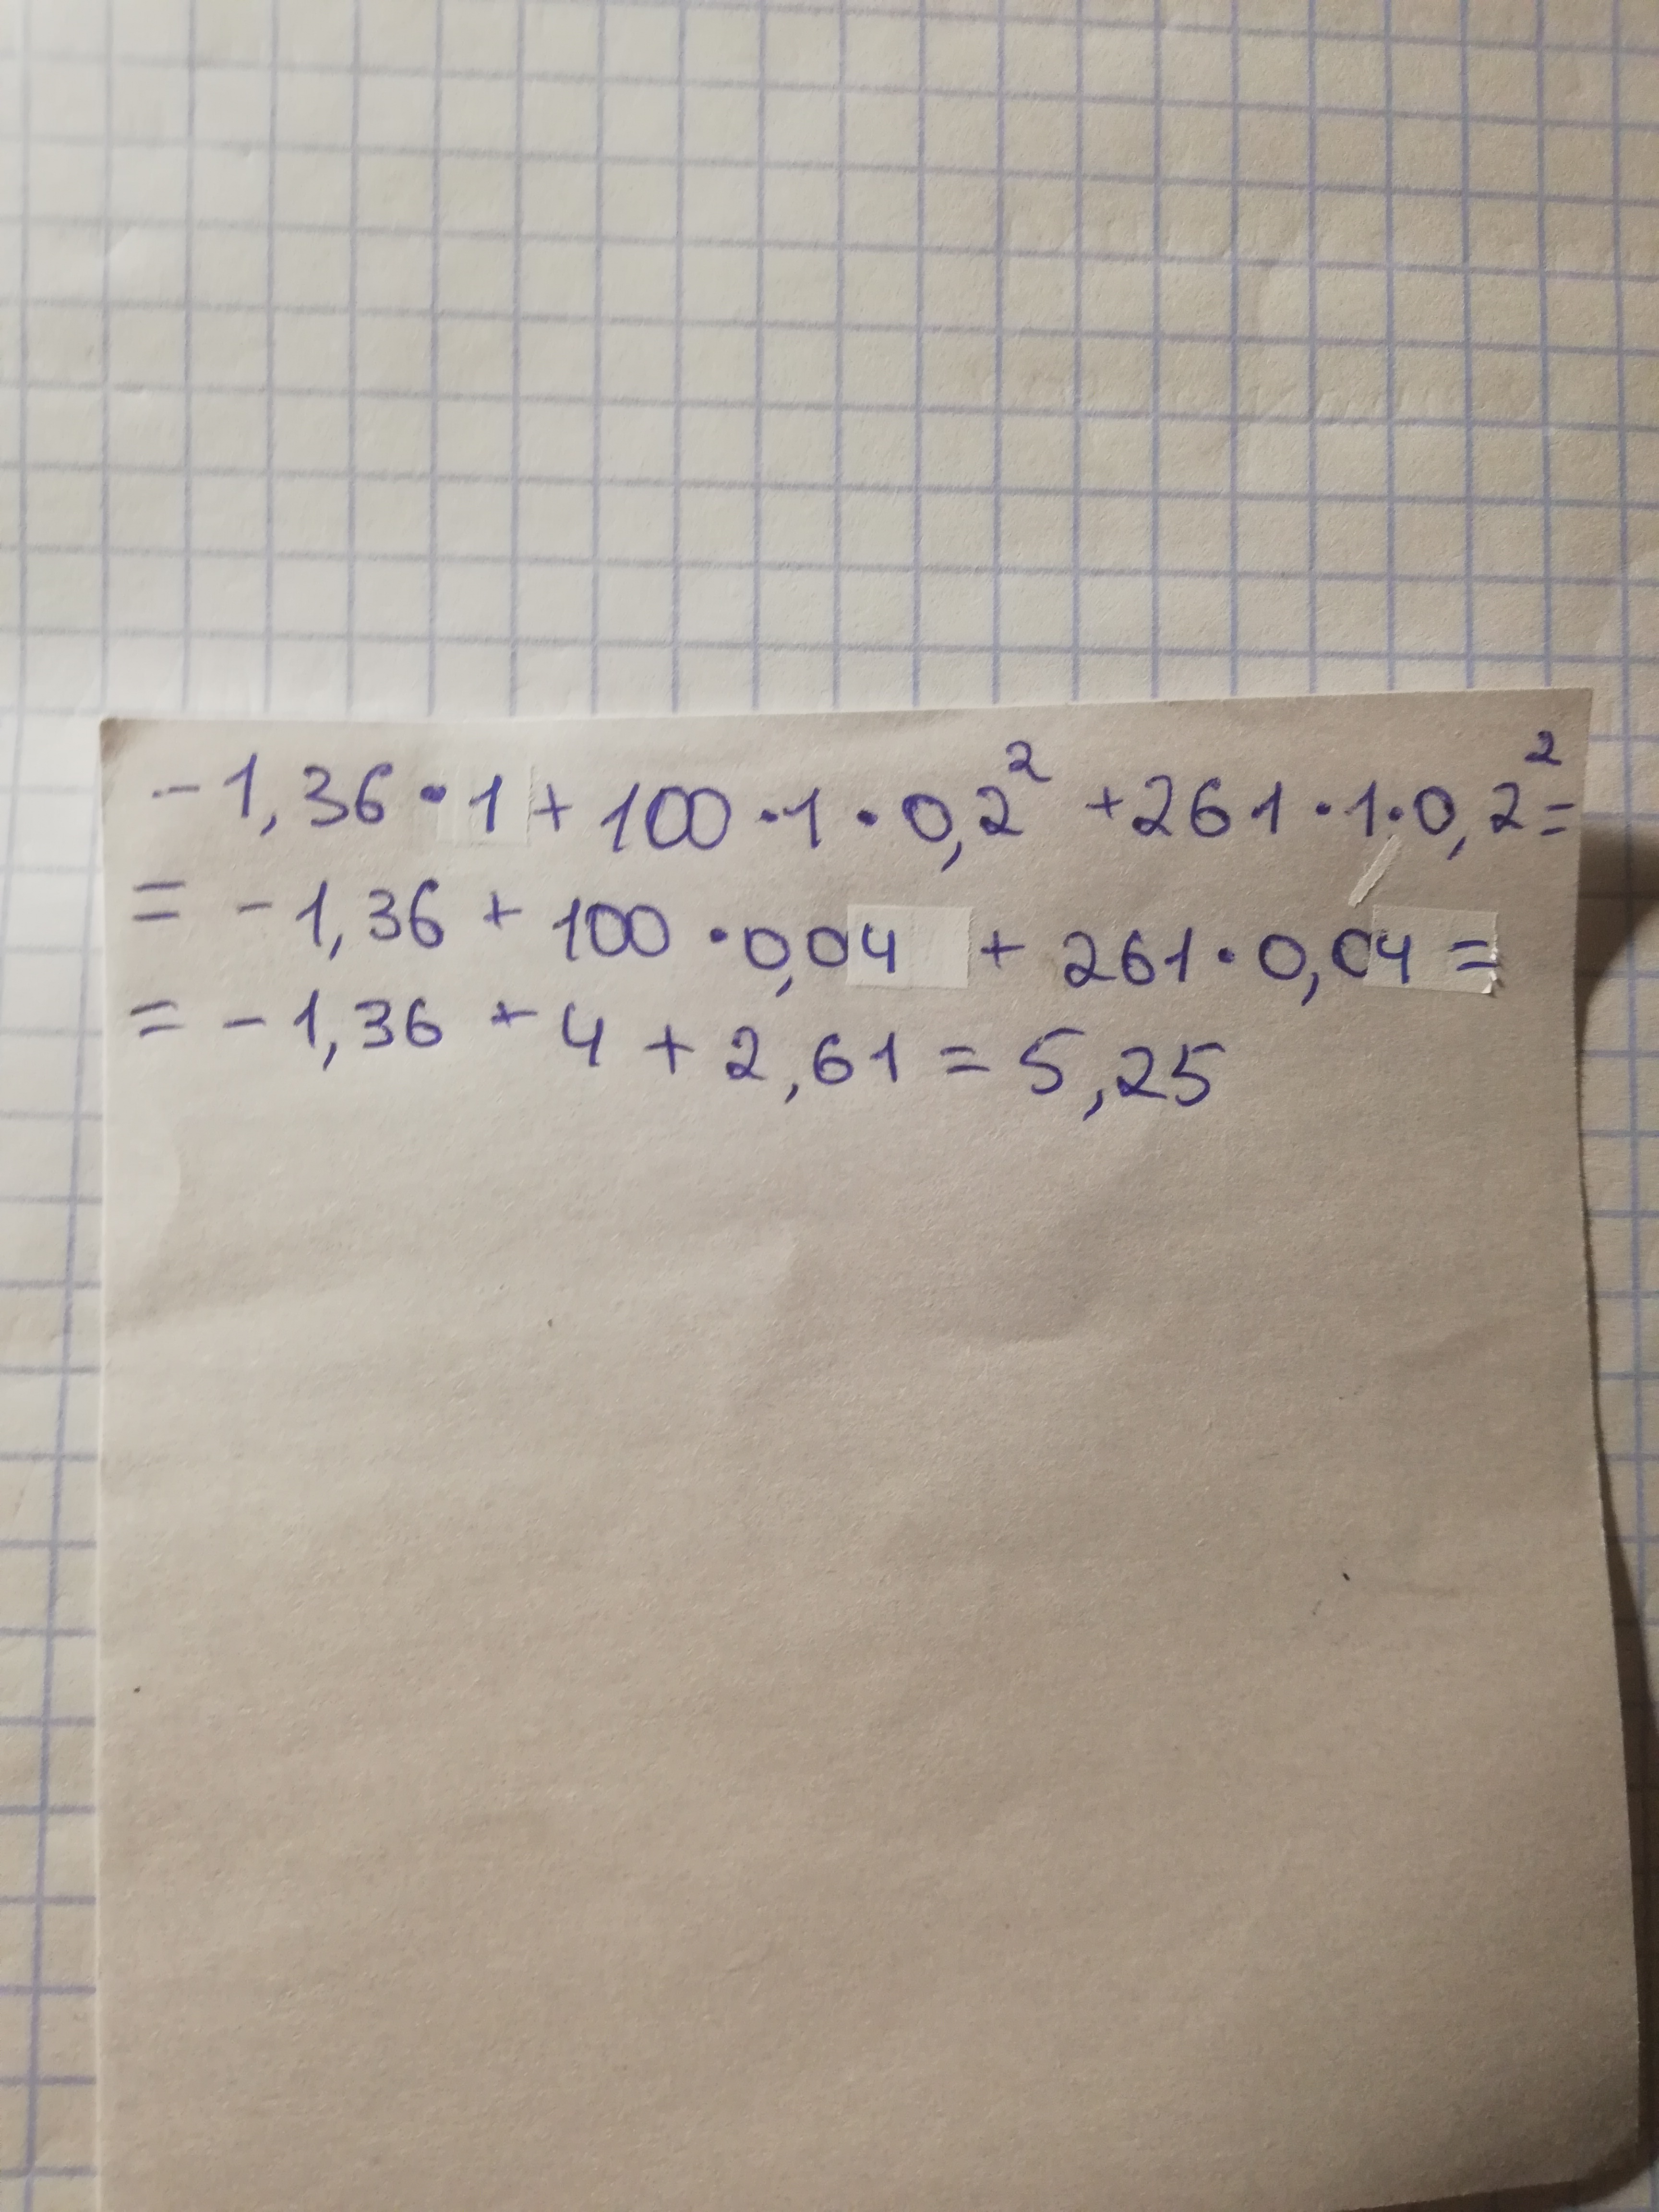 -1,36·1+100·1·0,2²+261·1·0,2²=
= -1,36 + 100·0,04 + 261·0,04 =
= -1,36 + 4 + 2,61 = 5,25